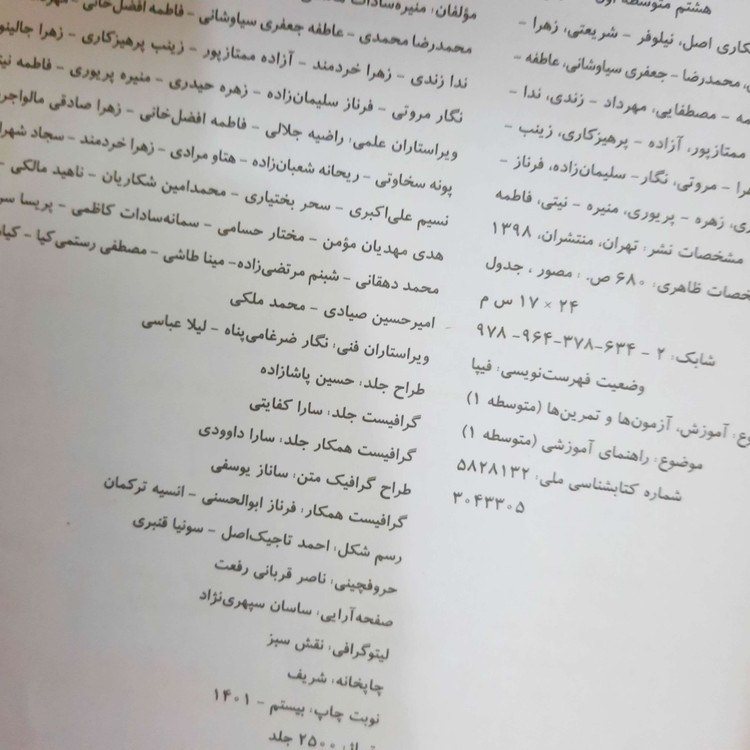 هشتم متوسطه اول
کاری اصل، نیلوفر - شریعتی، زهرا -
محمدرضا - جعفری سیاوشانی، عاطفه -
مه - مصطفایی، مهرداد - زندی، ندا -
ممتازپور، آزاده - پرهیزکاری، زینب -
را - مروتی، نگار - سلیمان‌زاده، فرناز -
زهره - پریوری، منیره - نیتی، فاطمه
مشخصات نشر: تهران، منتشران، ۱۳۹۸
خصات ظاهری: ۶۸۰ ص. : مصور ، جدول
۲۴ × ۱۷ س م
شابک: ۲ - ۶۳۴-۳۷۸-۹۶۴- ۹۷۸
وضعیت فهرست‌نویسی: فیپا
وع: آموزش، آزمون‌ها و تمرین‌ها (متوسطه ۱)
موضوع: راهنمای آموزشی (متوسطه ۱)
شماره کتابشناسی ملی: ۵۸۲۸۱۳۲
۳۰۴۳۳۰۵
مؤلفان: منیره‌سادات
محمدرضا محمدی - عاطفه جعفری سیاوشانی - فاطمه افضل‌خانی -
ندا زندی - زهرا خردمند - آزاده ممتازپور - زینب پرهیزکاری - زهرا
نگار مروتی - فرناز سلیمان‌زاده - زهره حیدری - منیره پریوری - فاطمه
ویراستاران علمی: راضیه جلالی - فاطمه افضل‌خانی - زهرا صادقی
پونه سخاوتی - ریحانه شعبان‌زاده - هتاو مرادی - زهرا خردمند - سجاد
نسیم علی‌اکبری - سحر بختیاری - محمدامین شکاریان - ناهید مالکی -
هدی مهدیان مؤمن - مختار حسامی - سمانه‌سادات کاظمی - پریسا
محمد دهقانی - شبنم مرتضی‌زاده- مینا طاشی - مصطفی رستمی‌کیا -
امیرحسین صیادی - محمد ملکی
ویراستاران فنی: نگار ضرغامی‌پناه - لیلا عباسی
طراح جلد: حسین پاشازاده
گرافیست جلد: سارا کفایتی
گرافیست همکار جلد: سارا داوودی
طراح گرافیک متن: ساناز یوسفی
گرافیست همکار: فرناز ابوالحسنی - انسیه ترکمان
رسم شکل: احمد تاجیک‌اصل - سونیا قنبری
حروفچینی: ناصر قربانی رفعت
صفحه‌آرایی: ساسان سپهری‌نژاد
لیتوگرافی: نقش سبز
چاپخانه: شریف
نوبت چاپ: بیستم - ۱۴۰۱
۲۵۰۰ جلد